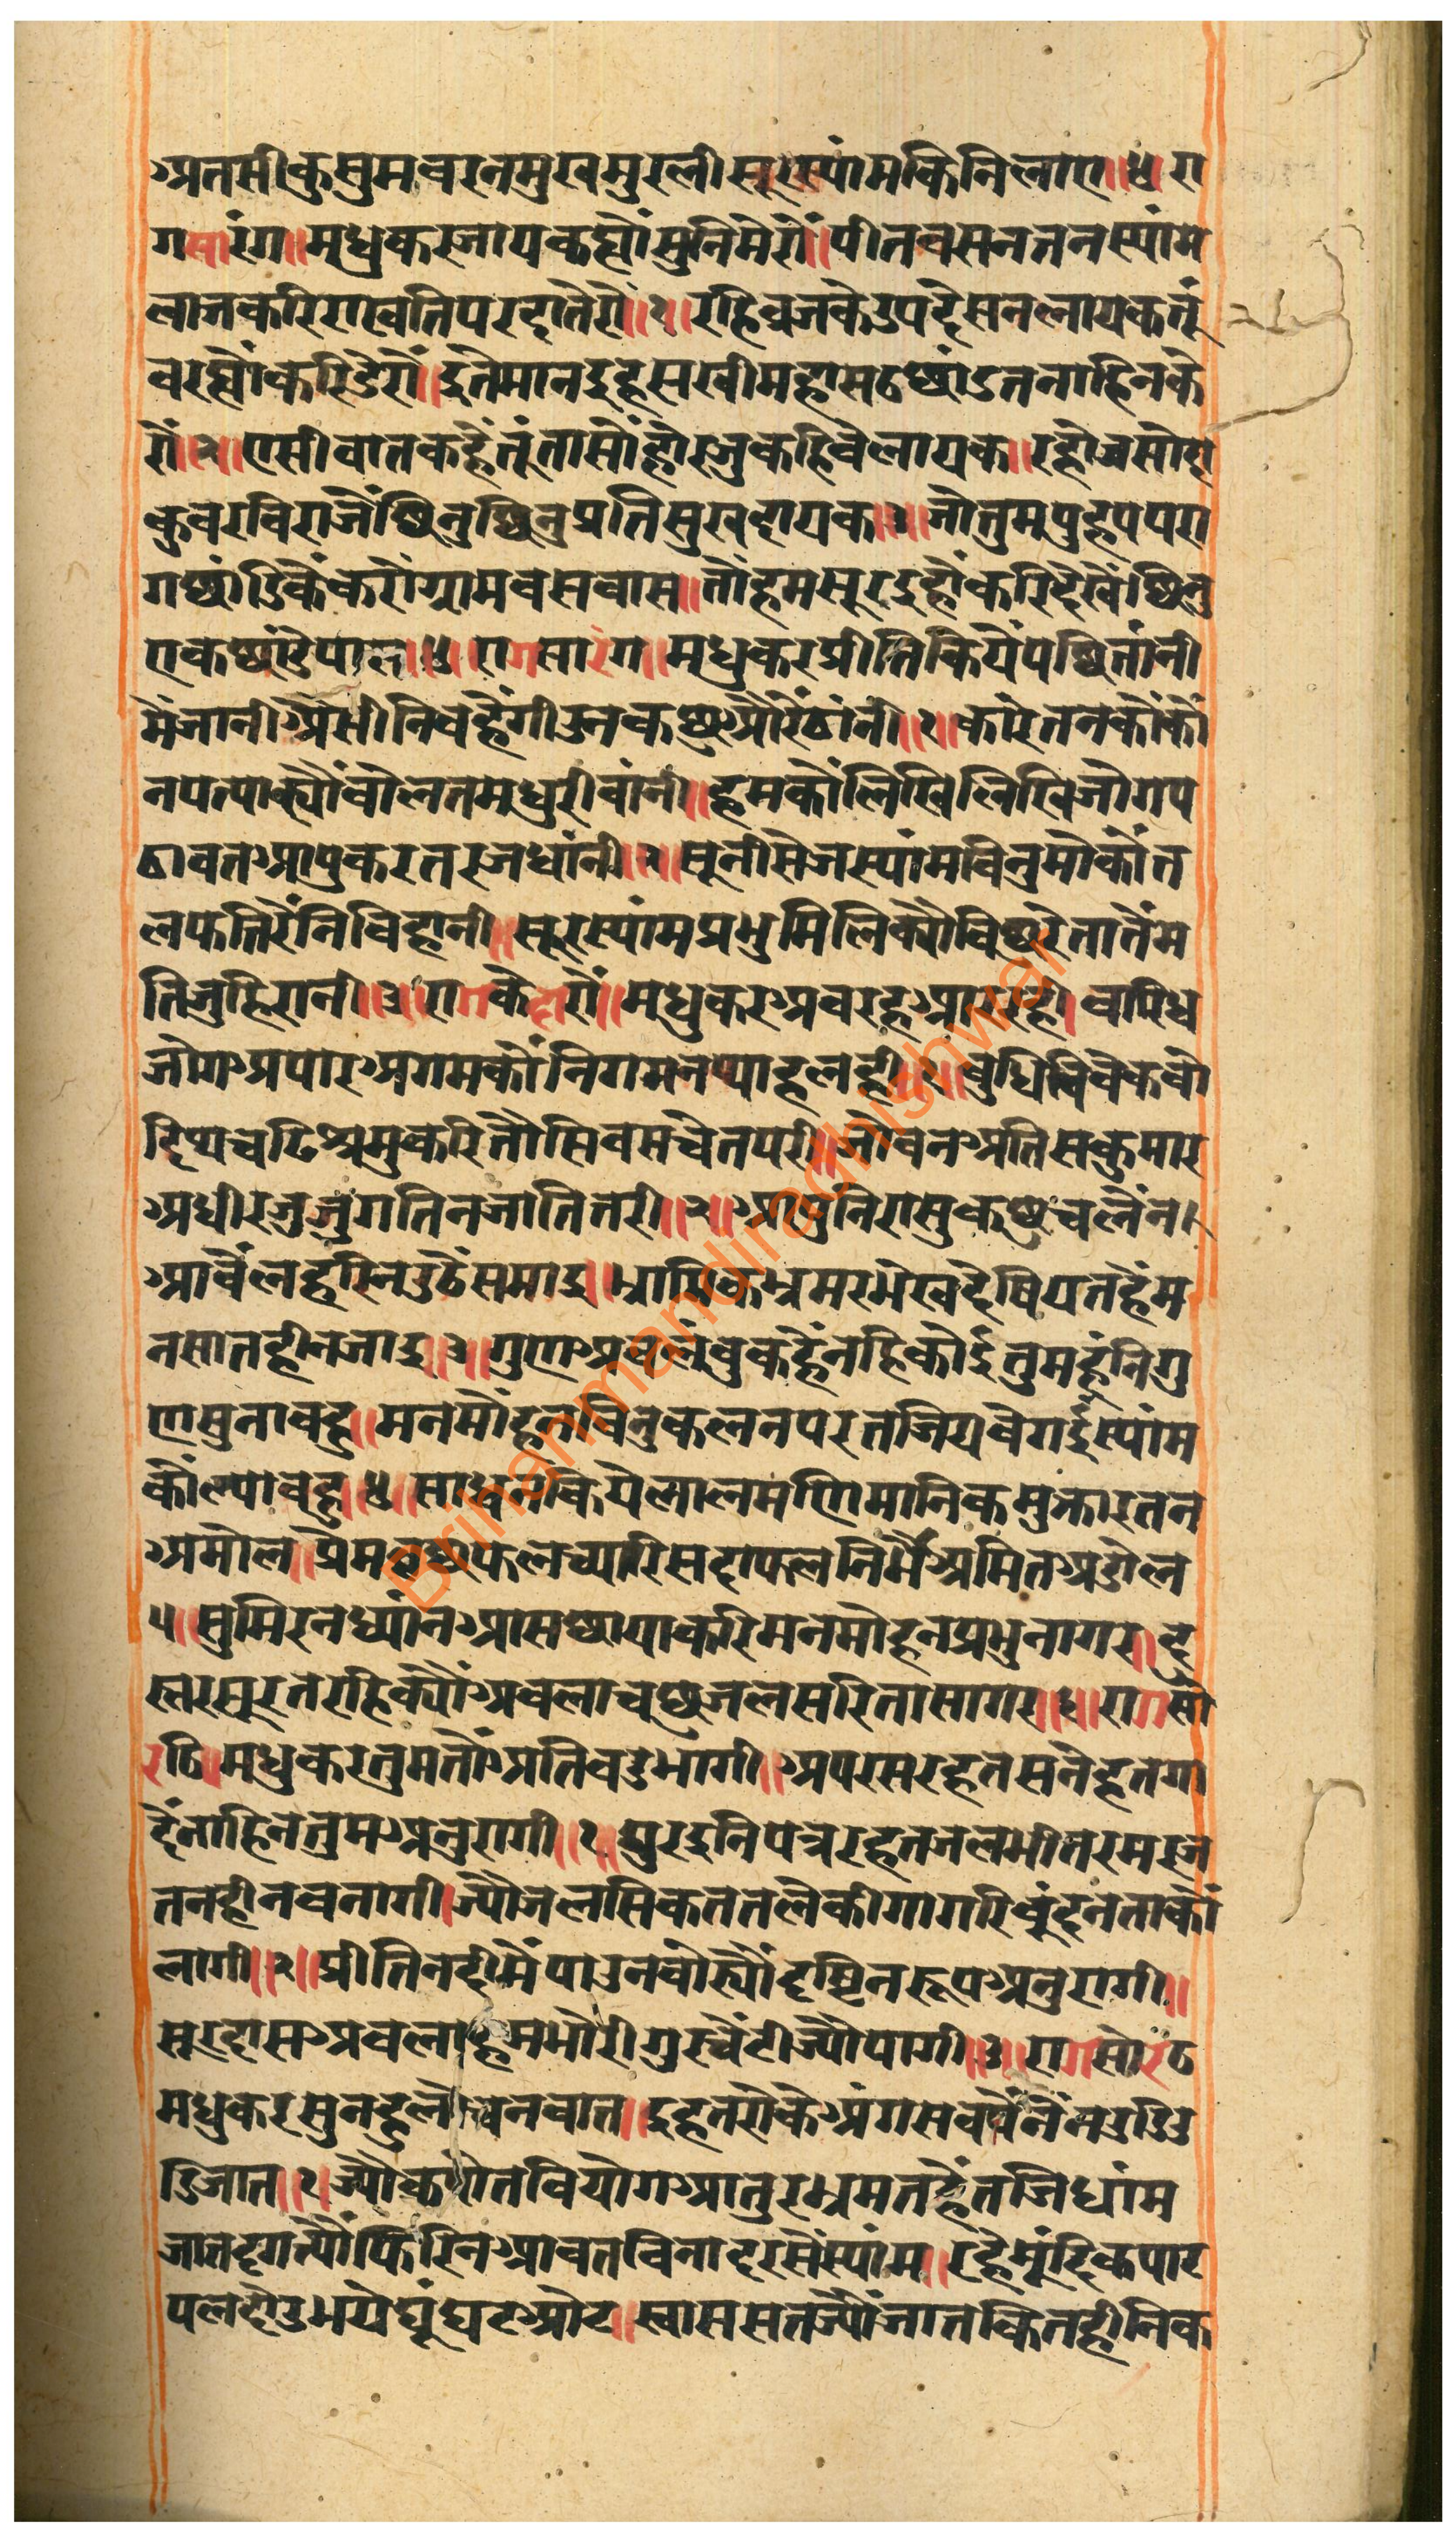 अतसीकुसुमवरनमुखमुरलीसूरस्यांमकिनिलाए॥४॥रा
गसारंग॥मधुकरजायकह्यौंसुनिमेरौं॥पीतवसनतनस्यांम
लाजकरिराखतिपरदातेरौ॥१॥रहिव्रजकेउपदेसनलायकतूं
वरह्यौंकरिडेरौं॥इतेमानइहसखीमहासठछांडतनाहिनके
रौं॥२॥एसीवातकहैंतूंतासौंहोरजुकहिवेलायक॥रहौजसोदा
कुवरविराजैंछिनुछिनुप्रतिसुखदायक॥३॥जोतुमपुहपपरा
गछांडिकैंकरौग्रामवसवास॥तौहमसूरइहौंकरिदेखैंछिनु
एकछांडैपास॥४॥रागसारंग॥मधुकरप्रीतिकियैंपछितांनी
मैंजानीअैसीनिवहैंगीउनकछुऔरैंठांनी॥१॥कारेतनकौंकौं
नपत्याऱ्यौंवोलतमधुरीवांनी॥हमकौंलिखिलिखिजोगप
ठावतआपुकरतरजधांनी॥२॥सूनीसेजस्यांमविनुमोकौंत
लफतिरैंनिविहानी॥सूरस्यांमप्रभुमिलिक्यौविछुरेतातैंमे
तिजुहिरानी॥३॥रागकेदारौं॥मधुकरअवरहआपरही॥वारिध
जोगअपारअगमकौंनिगमनथाहलही॥१॥वुधिविवेकवो
हिथचढिश्रमुकरितौसिवसचेतपरी॥जोवनअतिसकुमार
अधीरजुजुंगतिनजातितरी॥२॥आपुनिरासुकछुचलैंन।
आवैंलहरिनउठैंसमाइ॥भ्रामिकभ्रमरभेखदेषियतहैंम
नसातहीनजाइ॥३॥गुणअवलंवुकहैंनहिकोईतुमहूंनिगु
णसुनावहु॥मनमौंहनविनुकलनपरतजियवेगईस्यांम
कौंल्यावहु॥४॥साधनकियेलालमणिमानिकमुक्तारतन
अमोल॥प्रेमवछफलच्यारिसदाफलनिर्मैंअमितअडोल
५॥सुमिरनध्यांनआसछायाकरिमनमोहनप्रभुनागर॥दु
स्तरसूरतरहिक्यौंअवलाचुछजलसरितासागर॥६॥रागसो
रठि॥मधुकरतुमतौंअतिवडभागी॥अपरसरहतसनेहतगा
दैंनाहिनतुमअनुरागी॥१॥पुरइनिपत्ररहतजलभीतरमरज
तनहीनवनागी॥ज्यौजलसिकततेलकीगागरिवुंदनताकौं
लागी॥२॥प्रीतिनदीमैंपाउनवोर्‍यौंदृष्टिनरूपअनुरागी॥
सूरदासअवलाहमभोरीगुरचैंटीज्यौपागी॥३॥रागसोरठ
मधुकरसुनहुलोचनवात॥इहतरोकेअंगसवपैंनैंनउडिउ
डिजात॥१॥ज्यौकपोतवियोगआतुरभ्रमतहैंतजिधांम
जातदृगत्यौंफिरिनआवतविनादरसेंस्यांम॥रहैंमूंदिकपाट
पलदोउभयेघूंघटओट॥स्वाससतज्यौंजातकितहीनिक